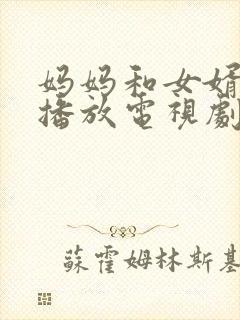 妈妈和女婿
播放電視劇
蘇霍姆林斯基